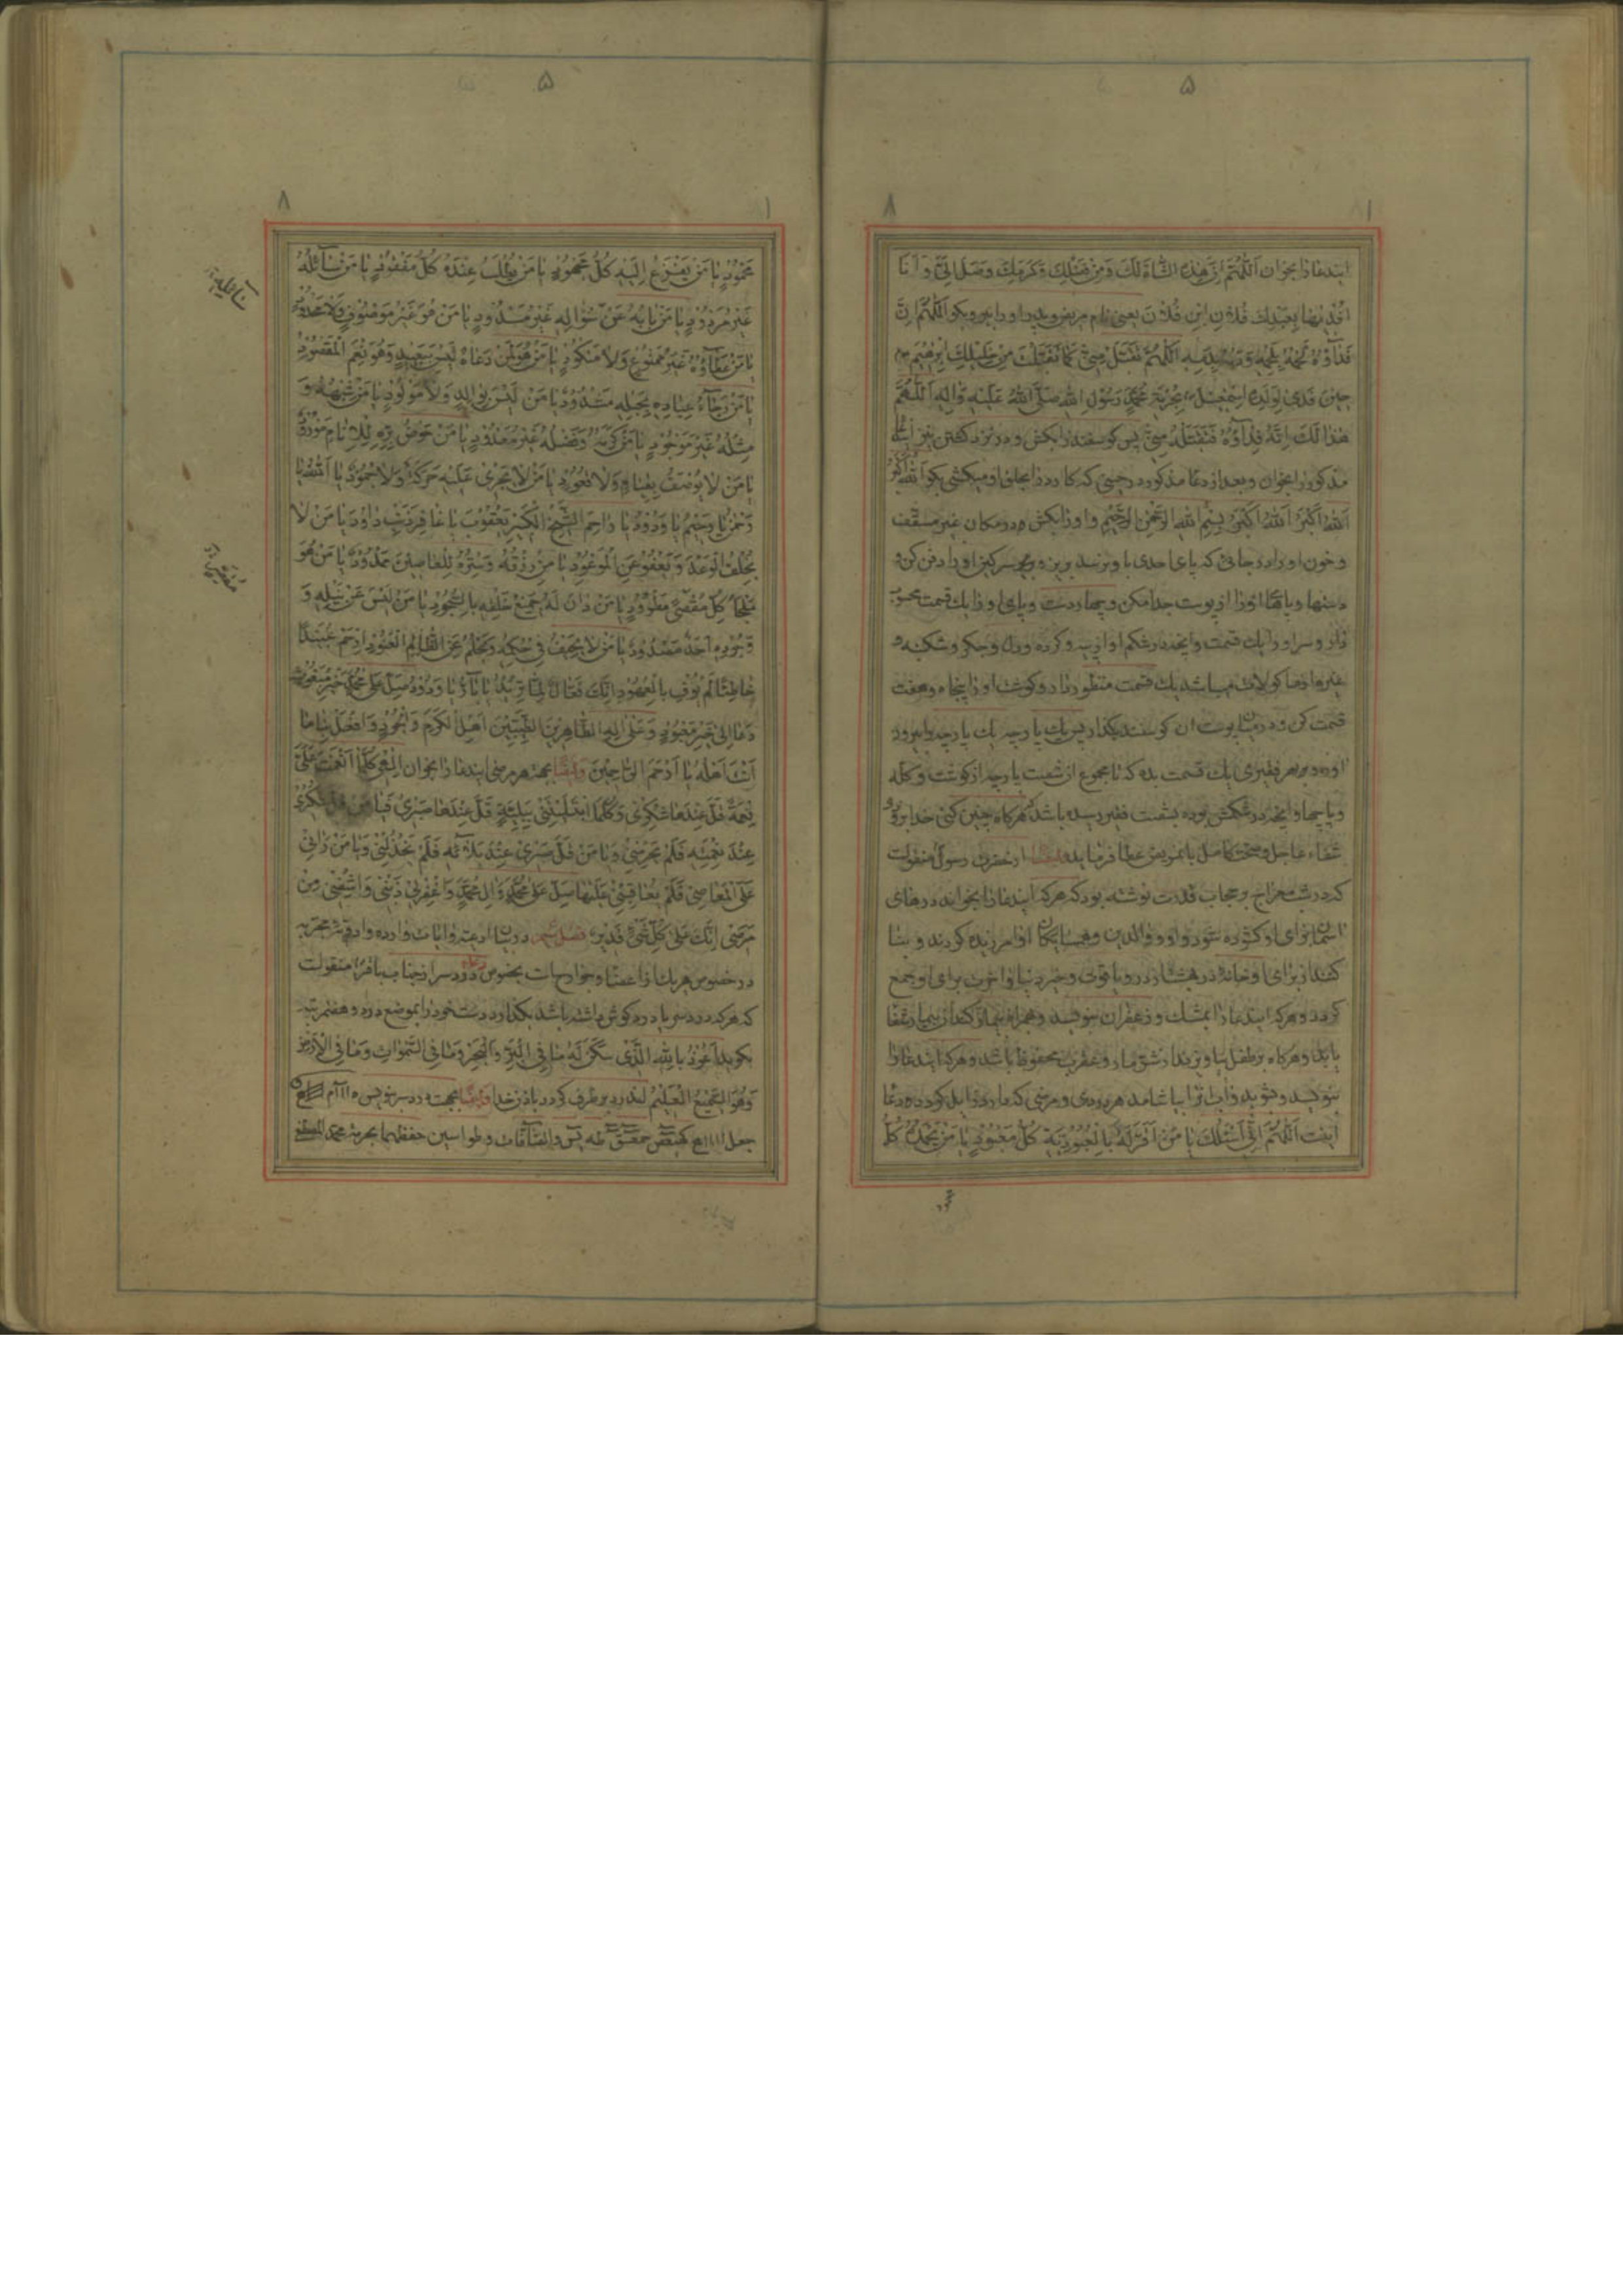 ۵
۸ ۱
ایندعا را بخوان اَللّهُمَّ اِنَّ هذِهِ الشّاةَ لَكَ وَ مِنْ فَضْلِكَ وَ كَرَمِكَ وَصَلَ اِلَیَّ وَ اَنَا
اَفْدِیها بِعَبْدِكَ فُلانِ ابْنِ فُلانَ یعنی نام مریض و پدر او را ببر و بکو اَللّهُمَّ اِنَّ
فَدٰاؤُهُ لَحْمُهُ بِلَحْمِهِ وَ دَمُهُ بِدَمِهِ اَللّهُمَّ تَقَبَّلْ مِنّی كَمٰا تَقَبَّلْتَ مِنْ خَلیلِكَ اِبْرٰهیمَ
حینَ فَدٰی لِوَلَدِهِ اِسْمٰعیلَ بِحُرْمَةِ مُحَمَّدٍ رَسُولِ اللّهِ صَلَّی اللّهُ عَلَیْهِ وَ الِهِ اَللّهُمَّ
هٰذا لَكَ اِنَّهُ فِدٰاؤُهُ فَتَقَبَّلْهُ مِنّی پس کوسفند را بکش و در نزد کشتن نیز
مذکور را بخوان و بعد از دعا مذکور در حینی که کارد را بحلق او میکشی بکو اَللّهُ اَكْبَرُ
اَللّهُ اَكْبَرُ اَللّهُ اَكْبَرُ بِسْمِ اللّهِ الرَّحْمنِ الرَّحیمِ و او را بکش در مکان غیر مسقف
و خون او را در جائی که پای احدی باو نرسد بریز و سرکین او را دفن کن و
دستها و پاها او را از پوست جدا مکن و چهار دست و پای او را یك قسمت محسوب
دار و سر او را یك قسمت و آنچه در شکم او از پیه و کرده و دل و جکر و شکنبه و
غیرها میباشد یك قسمت منظور دار و کوشت او را پنجاه و هفت
قسمت کن و در میان پوست ان کوسفند بکذار پس یك پارچه یك پارچه را بیرون
اورده بهر فقیری یك قسمت بده که تا مجموع از شصت پارچه از کوشت و کله
و پاچها و آنچه در شکمش بوده بشصت فقیر رسیده باشد هرکاه چنین کنی خدا بزودی
شفاء عاجل و صحت کامل بانمریض عطا فرماید ایضا از حضرت رسول منقولست
که در شب معراج بر حجاب قدرت نوشته بود که هرکه ایندعا را بخواند درهای
اسمان برای او کشوده شود و او و والدین و همسایکان او امرزیده کردند و بنا
کنند از برای او خانهٔ در بهشت از در و یاقوت و خیر دنیا و اخرت برای او جمع
کردد و هرکه ایندعا را بمشك و زعفران بنویسد و همراه بیمار کند از بیماری شفا
یابد و هرکاه بر طفل بیاویزند از شرّ مار و عقرب محفوظ باشد و هرکه ایندعا را
بنویسد و بشوید و اب ترا بیاشامد هر دردی و مرضی که دارد زایل کردد و دعا
اینست اَللّهُمَّ اِنّی اَسْئَلُكَ یا مَنْ اَقَرَّ لَهُ بِالْعُبُودِیَّةِ كُلُّ مَعْبُودٍ یا مَنْ یَحْمَدُهُ كُلُّ
۵
۸ ۱
مَحْمُودٍ یا مَنْ یَفْزَعُ اِلَیْهِ كُلُّ مَجْهُودٍ یا مَنْ یُطْلَبُ عِنْدَهُ كُلُّ مَفْقُودٍ یا مَنْ سٰائِلُهُ
غَیْرُ مَرْدُودٍ یا مَنْ بابُهُ عَنْ سُؤٰالِهِ غَیْرُ مَسْدُودٍ یا مَنْ هُوَ غَیْرُ مَوْصُوفٍ وَ لا مَحْدُودٍ
یا مَنْ عَطٰاؤُهُ غَیْرُ مَمْنُوعٍ وَ لا مَنْكُودٍ یا مَنْ هُوَ لِمَنْ دَعٰاهُ لَیْسَ بِبَعیدٍ وَ هُوَ نِعْمَ الْمَقْصُودُ
یا مَنْ رَجٰاءُ عِبادِهِ بِحَبْلِهِ مَشْدُودٌ یا مَنْ لَیْسَ بِوٰالِدٍ وَ لا مَوْلُودٍ یا مَنْ شِبْهُهُ وَ
مِثْلُهُ غَیْرُ مَوْجُودٍ یا مَنْ كَرَمُهُ وَ فَضْلُهُ غَیْرُ مَعْدُودٍ یا مَنْ حَوْضُ بِرِّهِ لِلْاَنٰامِ مَوْرُودٌ
یا مَنْ لا یُوصَفُ بِقِیامٍ وَ لا قُعُودٍ یا مَنْ لا تَجْری عَلَیْهِ حَرَكَةٌ وَ لا جُمُودٌ یا اَللّهُ یا
رَحْمنُ یا رَحیمُ یا وَدُودُ یا رٰاحِمَ الشَّیْخِ الْكَبیرِ یَعْقُوبَ یا غٰافِرَ ذَنْبِ دٰاوُدَ یا مَنْ لا
یُخْلِفُ الْوَعْدَ وَ یَعْفُو عَنِ الْمَوْعُودِ یا مَنْ رِزْقُهُ وَ سِتْرُهُ لِلْعٰاصینَ مَمْدُودٌ یا مَنْ هُوَ
مَلْجَأُ كُلِّ مُقْصیً مَطْرُودٍ یا مَنْ دٰانَ لَهُ جَمیعُ خَلْقِهِ بِالسُّجُودِ یا مَنْ لَیْسَ عَنْ نَیْلِهِ وَ
وَجُودِهِ اَحَدٌ مَصْدُودٌ یا مَنْ لا یَحیفُ فی حُكْمِهِ وَ یَحْلُمُ عَنِ الظّالِمِ الْعَنُودِ اِرْحَمْ عُبَیْدًا
خٰاطِئًا لَمْ یُوفِ بِالْعُهُودِ اِنَّكَ فَعّالٌ لِمٰا تُریدُ یا بٰارُّ یا وَدُودُ صَلِّ عَلی مُحَمَّدٍ خَیْرِ مَبْعُوثٍ
دَعٰا اِلی خَیْرِ مَعْبُودٍ وَ عَلی الِهِ الطّاهِرینَ الطَّیِّبینَ اَهْلِ الْكَرَمِ وَ الْجُودِ وَ افْعَلْ بِنا ما
اَنْتَ اَهْلُهُ یا اَرْحَمَ الرّاحِمینَ و ایضا بجهة هر مرضی ایندعا را بخوان اِلهی كُلَّمٰا اَنْعَمْتَ عَلَیَّ
نِعْمَةً قَلَّ عِنْدَهٰا شُكْری وَ كُلَّمَا ابْتَلَیْتَنی بِبَلِیَّةٍ قَلَّ عِنْدَهٰا صَبْری فَیا مَنْ قَلَّ شُكْری
عِنْدَ نِعْمَتِهِ فَلَمْ یَحْرِمْنی وَ یا مَنْ قَلَّ صَبْری عِنْدَ بَلٰائِهِ فَلَمْ یَخْذُلْنی وَ یا مَنْ رَاٰنی
عَلَی الْمَعٰاصی فَلَمْ یُعٰاقِبْنی عَلَیْها صَلِّ عَلی مُحَمَّدٍ وَ الِ مُحَمَّدٍ وَ اغْفِرْ لی ذَنْبی وَ اشْفِنی مِنْ
مَرَضی اِنَّكَ عَلی كُلِّ شَیْءٍ قَدیرٌ فصل در بیان ادعیه و ایات وارده و ادویهٔ مجربه
در خصوص هر یك از اعضا و جوارح است بخصوص درد سر از جناب باقر منقولست
که هرکه درد سر یا درد کوش داشته باشد بکذارد دست خود را بموضع درد و هفتمرتبه
بکوید اَعُوذُ بِاللّهِ الَّذی سَكَنَ لَهُ مٰا فِی الْبَرِّ وَ الْبَحْرِ وَ مٰا فِی السَّمٰوٰاتِ وَ مٰا فِی الْاَرْضِ
وَ هُوَ السَّمیعُ الْعَلیمُ ایندرد بر طرف کردد باذن خدا و ایضا بجهت درد سر بنویس
کهیعص حمعسق طه یس والصافات و طواسین حفظهما بحرمة محمد المصطفی